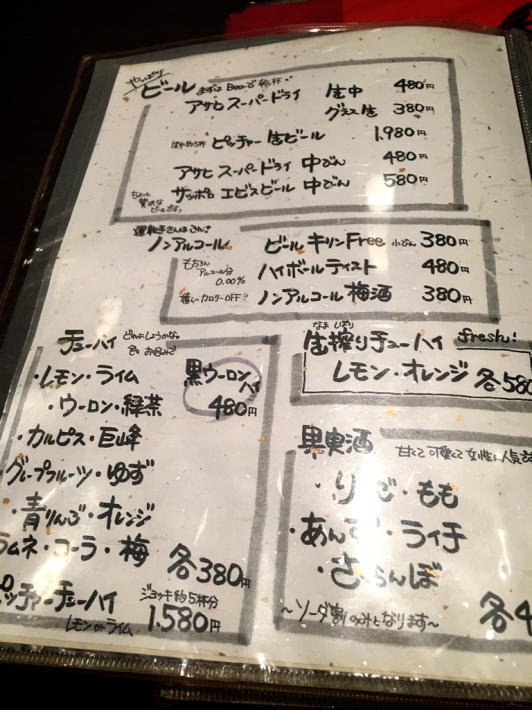 やっぱり
ビール まずはBeerで乾杯!!
アサヒスーパードライ 生中 480円
グラス生 380円
ピッチャー生ビール 1,980円
アサヒスーパードライ 中びん 480円
サッポロエビスビール 中びん 580円
ちょっと
贅沢な
ビールです。
運転手さんはこれ!
ノンアルコール ビールキリンFree 小びん 380円
もちろん
アルコール分
0.00%
ハイボールテイスト 480円
嬉しいカロリーOFF?
ノンアルコール梅酒 380円
チューハイ どれにしようかな。
色々お好みで
・レモン・ライム
黒ウーロンハイ
480円
・ウーロン・緑茶
・カルピス・巨峰
グレープフルーツ・ゆず
・青りんご・オレンジ
ラムネ・コーラ・梅 各380円
ピッチャーチューハイ ジョッキ約5杯分
レモンorライム 1,580円
なま しぼり
生搾りチューハイ fresh!
レモン・オレンジ 各580
果実酒 甘くて可愛くて女性に人気
・りんご・もも
・あんず・ライチ
・さくらんぼ
各4
〜ソーダ割のみとなります〜